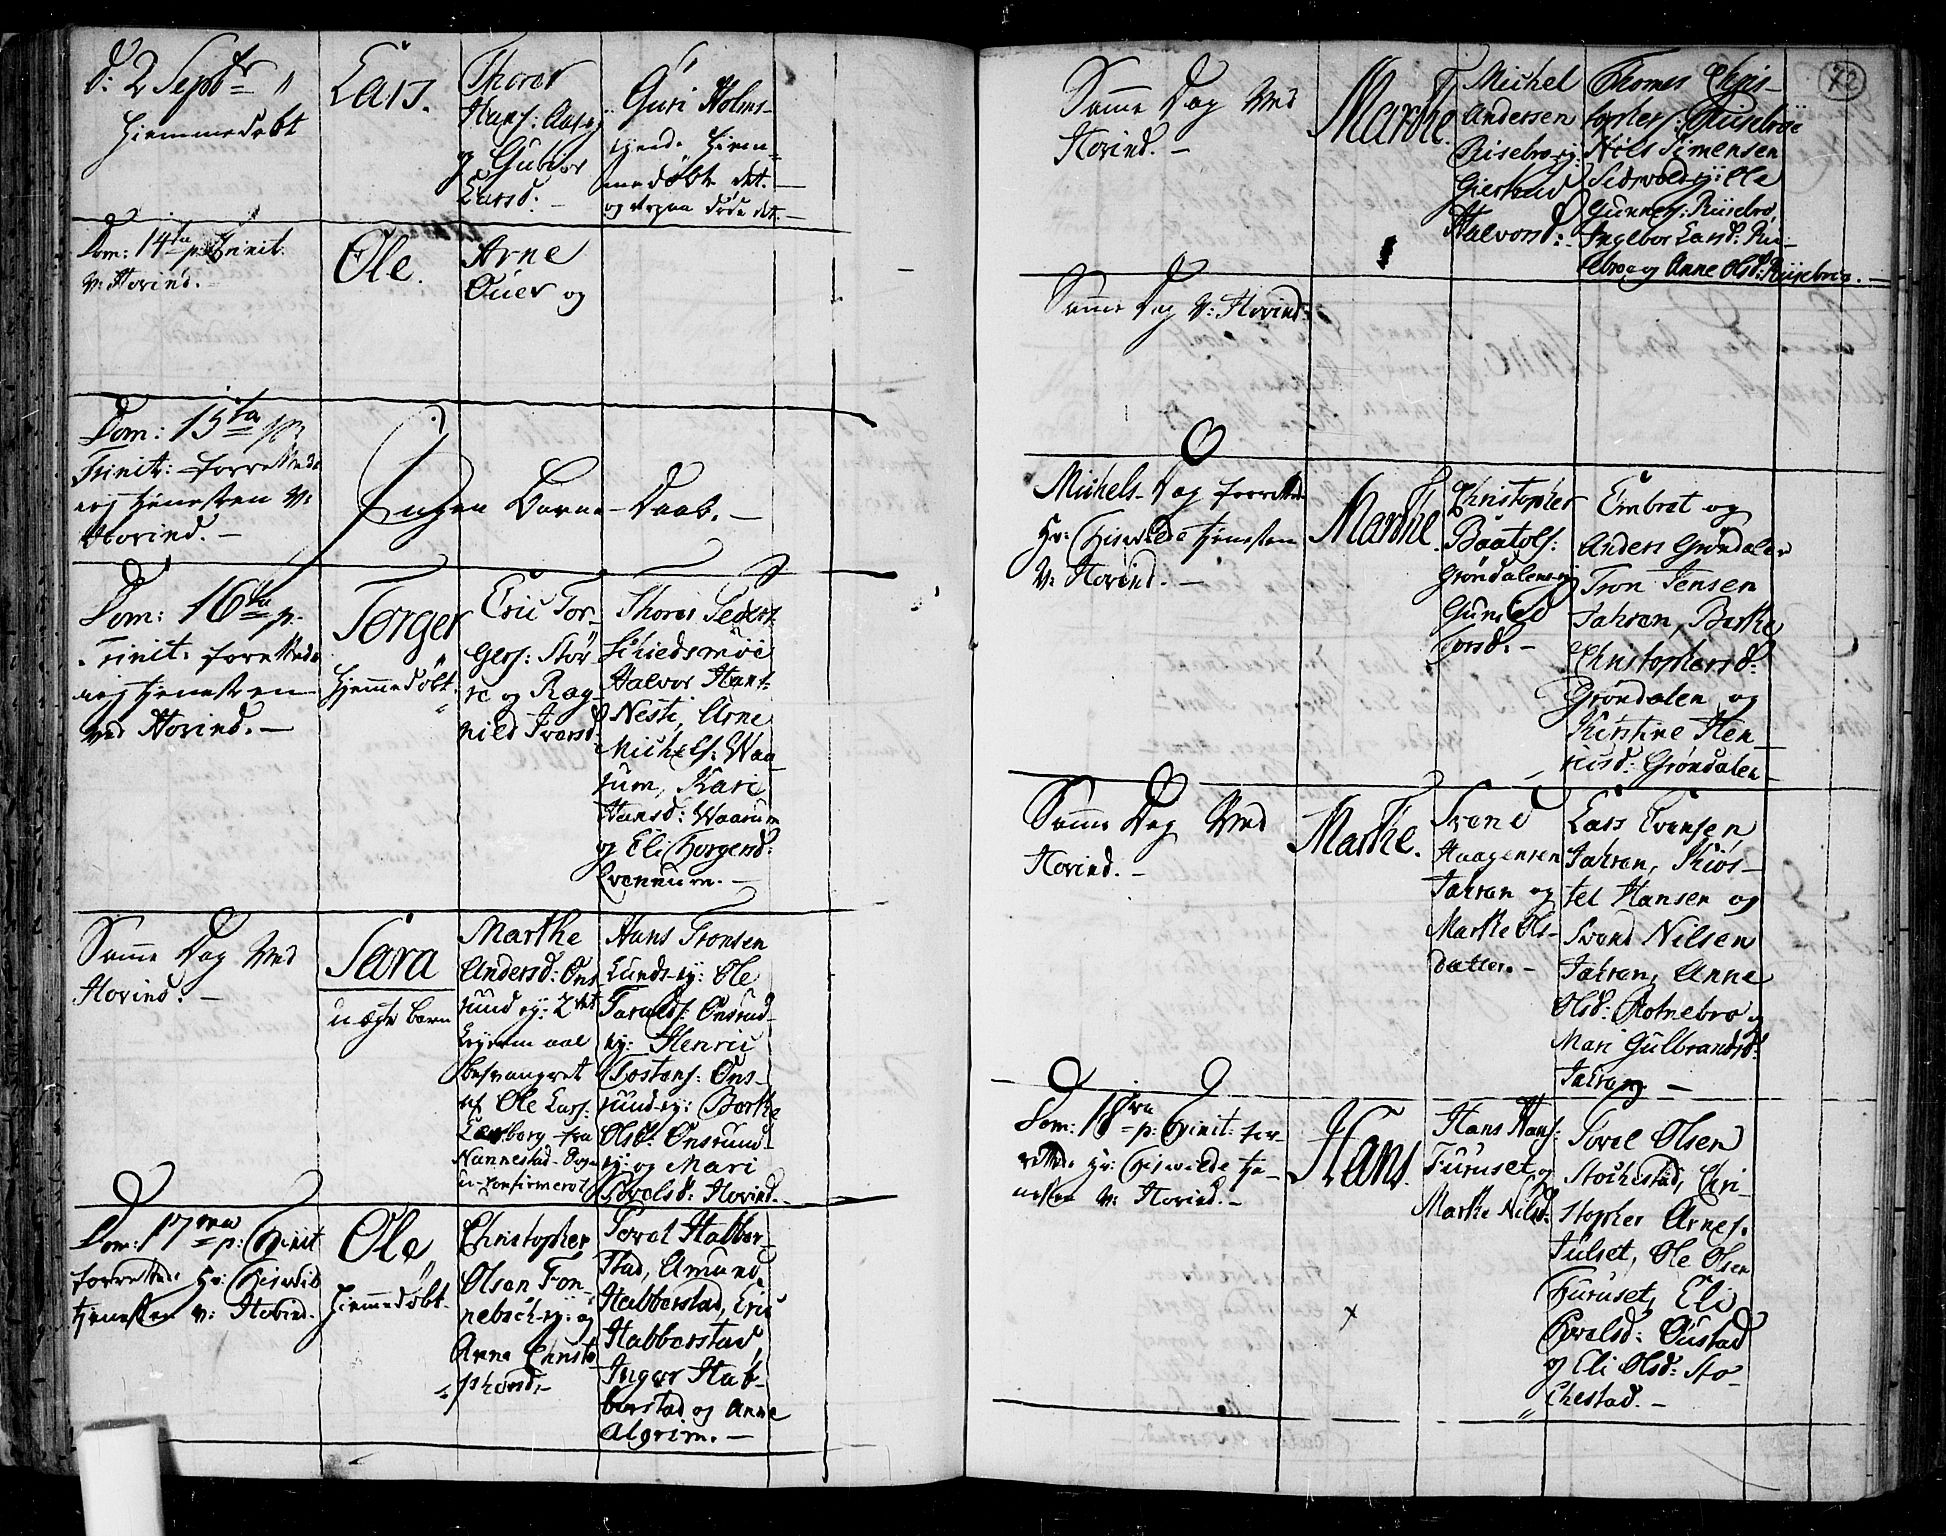 d: 2 Septbr "
Hjemmedøbt
Lars.
Thorer
Hans: Aas
og Gubjør
Larsd: -
Guri Holms-
eyende Hjem-
medøbte det. -
og døde det. -
Dom: 14ta p: Trinit.
v: Hovind. -
Ole.
Arne
Øuer og
Dom: 15ta p:
Trinit: forrettede
jeg tjenesten v:
Hovind. -
Ingen Barne-Daab. -
Dom: 16ta p.
Trinit: forrettede
jeg tjenesten
ved Hovind. -
Torger
Hjemmedøbt.
Eric Tor-
gers: Stør-
re og Rag-
nild Iversd.
Thorer Peders:
Schiedsmoe
Halvor Hans:
Nesti, Arne
Michels: Waa-
rum, Kari
Hansd: Waarum
og Eli Torgersd:
Evennum. -
Samme Dag Ved
Hovind. -
Sara
uægte barn
Marthe
Andersd: Ons-
rud ey: 2det
Leyermaal
besvangret
af Ole Lars:
fra
Nannestad-Sogn
u-konfirmeret
Hans Tronsen
Lunds-ey: Ole
Taralds: Onsrud-
ey: Henric
Tostens: Ons-
rund-ey: Berthe
Olsd: Onsrund
ey: og Mari
Povelsd: Hovind. -
Dom: 17ma p: Trinit
forrettede Hr:
tjenesten v: Hovind.
Ole
Hjemmedøbt.
Christopher
Olsen Fon-
nebech-ey: og
Anne Christo-
phersd: -
Povel Habber-
stad, Amund
Habberstad, Eric
Habberstad
Inger Hab-
berstad og Anne
Algrim. -
72
Samme Dag Ved
Hovind. -
Marthe.
Michel
Andersen
Risebro-ey:
Giertrud
Halvorsd: -
Thomes Chris-
tophers: Riisebroe
Nils Simensen
Ole
Gunners: Riisebro,
Ingebor Larsd: Rii-
sebroe og Anne Olsd: Riisebroe. -
Samme Dag V: Hovind:
Michels-Dag forrettede
Hr: tjenesten
V: Hovind. -
Marthe.
Christopher
Baatols:
Grøndalens-ey
Gunild
Torsd. -
Embret og
Anders Grøndalen
Tron Jensen
Jahren, Berthe
Christophersd:
Grøndalen og
Kirstine Hen-
ricsd: Grøndalen -
Samme Dag Ved
Hovind. -
Marthe.
Svend
Haagensen
Jahren og
Marthe Ols-
datter. -
Lars Evensen,
Jahren, Kiøs-
tel Hansen og
Svend Nilsen
Jahren, Anne
Olsd: Holnebro og
Mari Gulbrandsd:
Jahren -
Dom: 18va p: Trinit: for-
rettede Hr: tje-
nesten v: Hovind. -
Hans.
Hans Hans:
Furuset og
Marthe Nilsd:
Povel Olsen
Stochestad, Chri-
stopher Arnes:
Julset, Ole Olsen
Furuset, Eli
Povelsd: Øustad
og Eli Olsd: Sto-
chestad. -